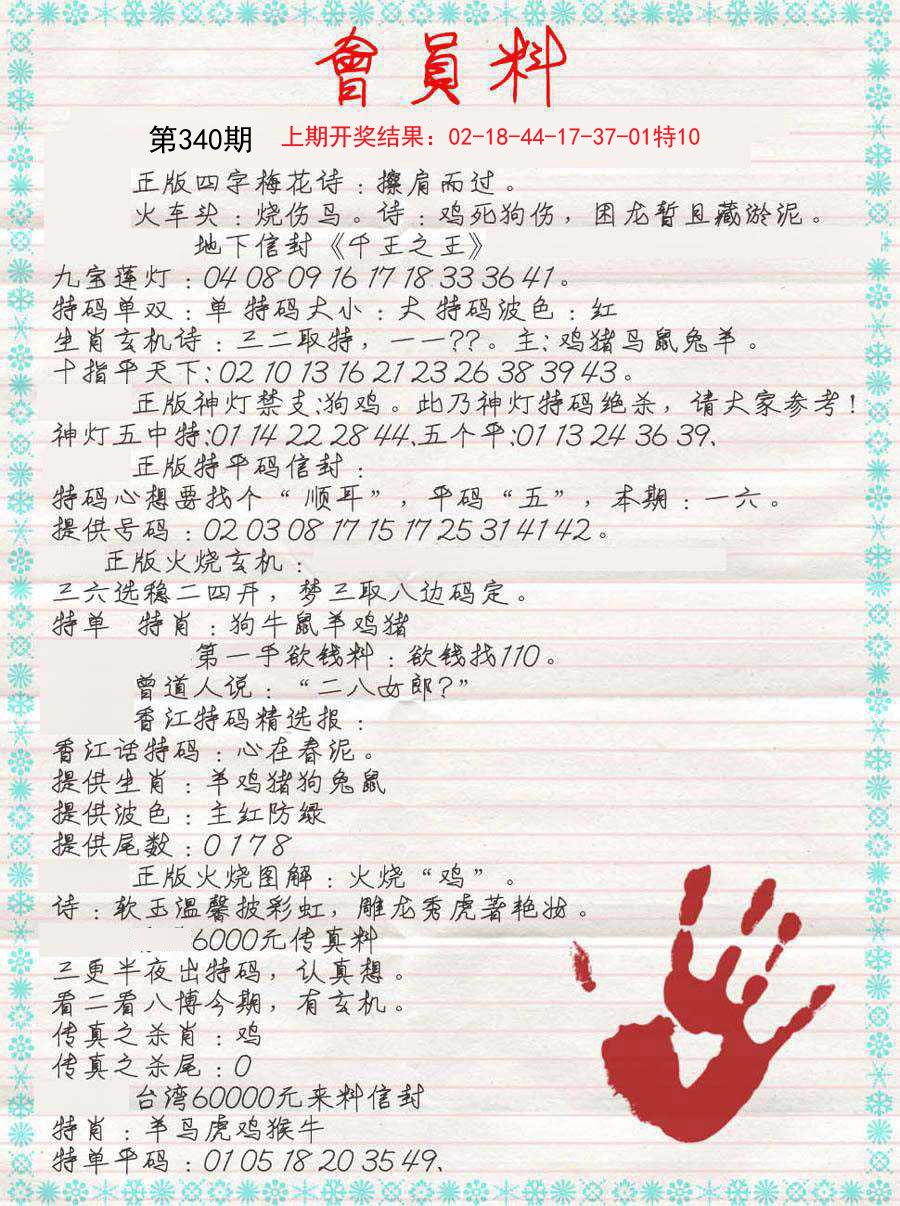 會員料
第340期 上期开奖结果：02-18-44-17-37-01特10
正版四字梅花诗：擦肩而过。
火车头：烧伤马。诗：鸡死狗伤，困龙暂且藏淤泥。
地下信封《千王之王》
九宝莲灯：04 08 09 16 17 18 33 36 41。
特码单双：单 特码大小：大 特码波色：红
生肖玄机诗：三二取特，一一??。主：鸡猪马鼠兔羊。
十指平天下：02 10 13 16 21 23 26 38 39 43。
正版神灯禁支:狗鸡。此乃神灯特码绝杀，请大家参考！
神灯五中特:01 14 22 28 44、五个平:01 13 24 36 39、
正版特平码信封：
特码心想要找个“顺耳”，平码“五”，本期：一六。
提供号码：02 03 08 17 15 17 25 31 41 42。
正版火烧玄机：
三六选稳二四开，梦三取八边码定。
特单 特肖：狗牛鼠羊鸡猪
第一手欲钱料：欲钱找110。
曾道人说：“二八女郎？”
香江特码精选报：
香江话特码：心在春泥。
提供生肖：羊鸡猪狗兔鼠
提供波色：主红防绿
提供尾数：0 1 7 8
正版火烧图解：火烧“鸡”。
诗：软玉温馨披彩虹，雕龙秀虎著艳妆。
6000元传真料
三更半夜出特码，认真想。
看二看八博今期，有玄机。
传真之杀肖：鸡
传真之杀尾：0
台湾60000元来料信封
特肖：羊马虎鸡猴牛
特单平码：01 05 18 20 35 49、